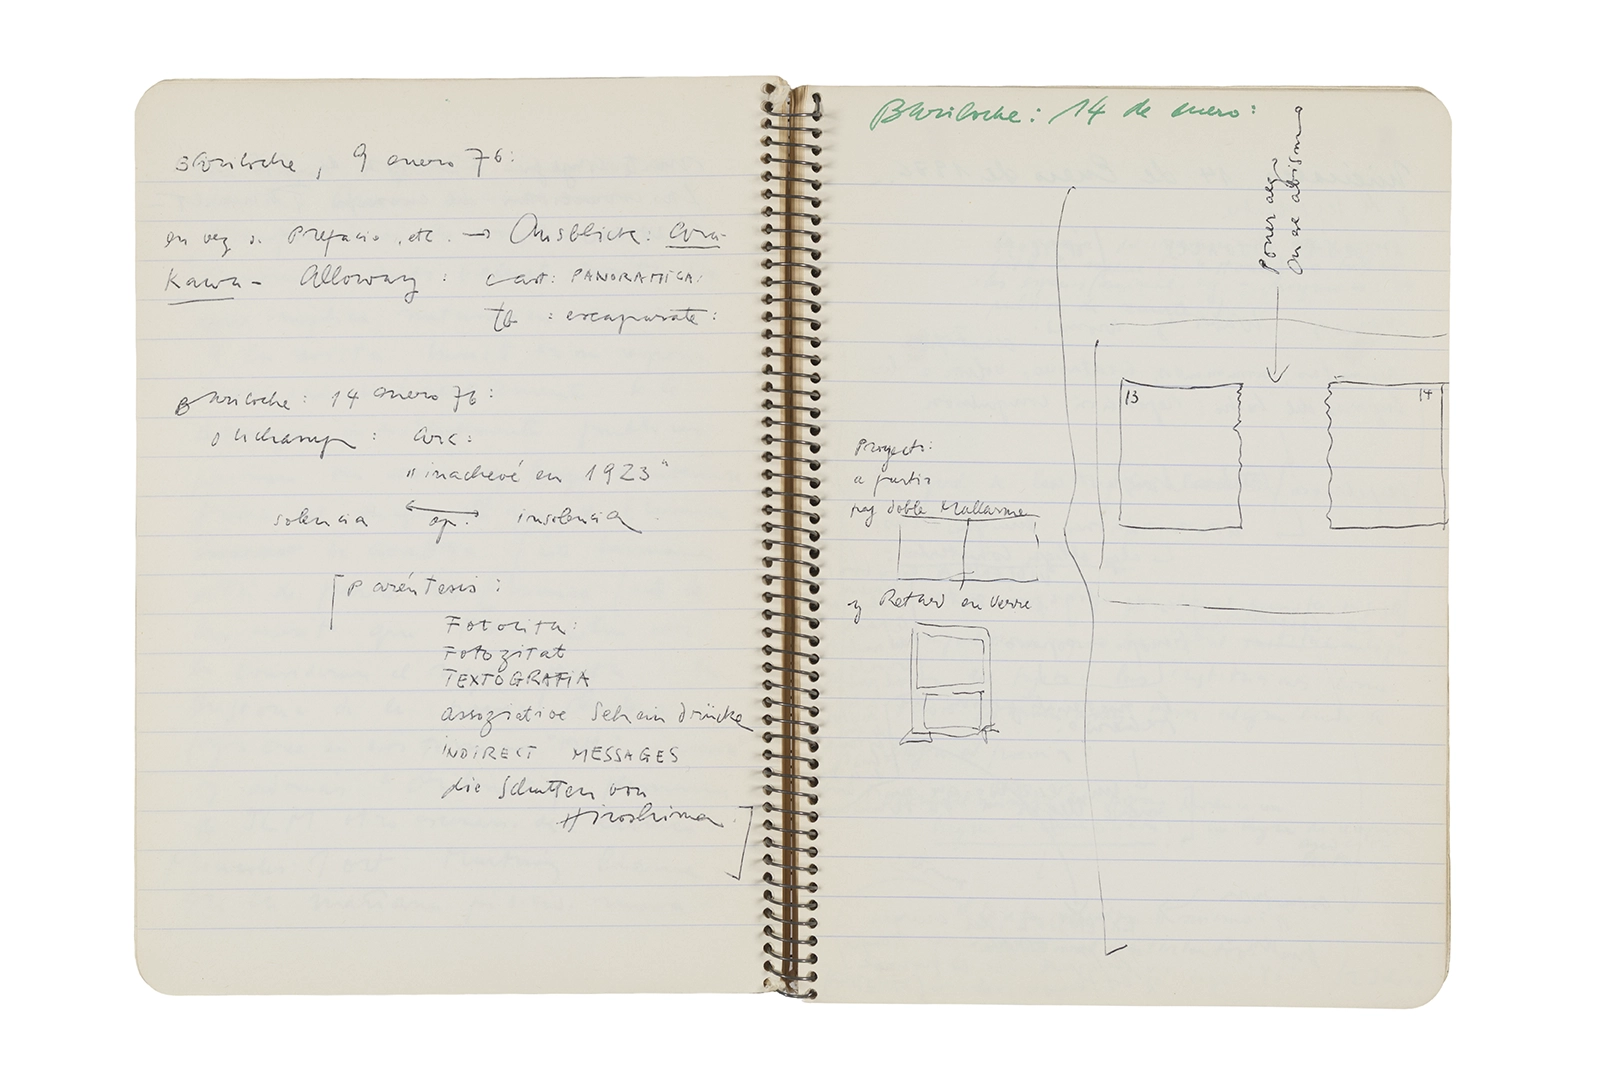 Bariloche, 9 enero 76:
en vez de Prefacio, etc. → Ausblick: Ara-
Kawa - Alloway: cast: PANORAMICA:
tb: escaparate:
Bariloche: 14 enero 76:
Duchamp:
"inachevé en 1923"
solencia op. insolencia
Paréntesis:
Fotocita:
Fotozitat
TEXTOGRAFIA
assoziative Scheindrücke
INDIRECT MESSAGES
die Schatten von
Hiroshima
Bariloche: 14 de enero:
Poner aeg
abismo
13
14
Proyecto:
a partir
pag doble Mallarmé
y Retard en Verre